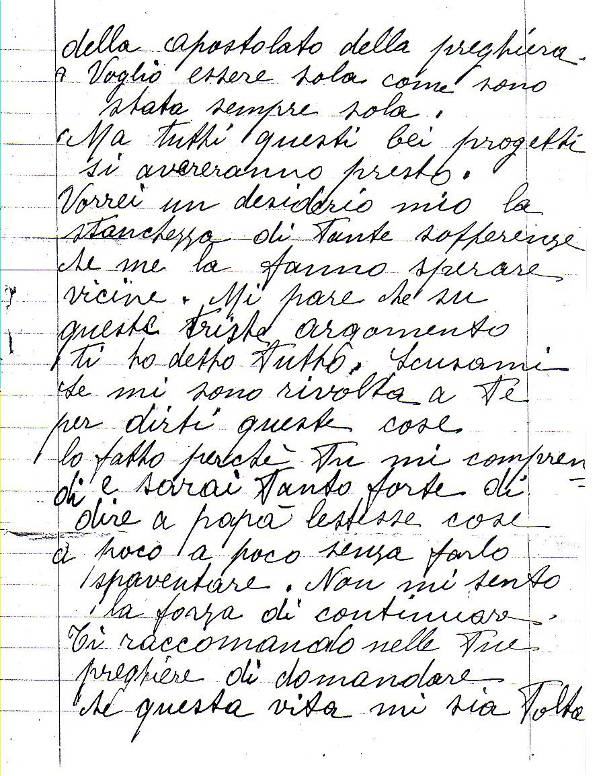 della apostolato della preghiera.
Voglio essere sola come sono
stata sempre sola.
Ma tutti questi bei progetti
si avereranno presto.
Vorrei un desiderio mio la
stanchezza di tante sofferenze
che me la fanno sperare
vicine. Mi pare che su
queste triste argomento
ti ho detto tutto. Scusami
se mi sono rivolta a Te
per dirti queste cose
lo fatto perchè Tu mi compren=
di e sarai tanto forte di
dire a papà lestesse cose
a poco a poco senza farlo
spaventare. Non mi sento
la forza di continuare.
Ti raccomando nelle Tue
preghiere di domandare
che questa vita mi sia Tolta